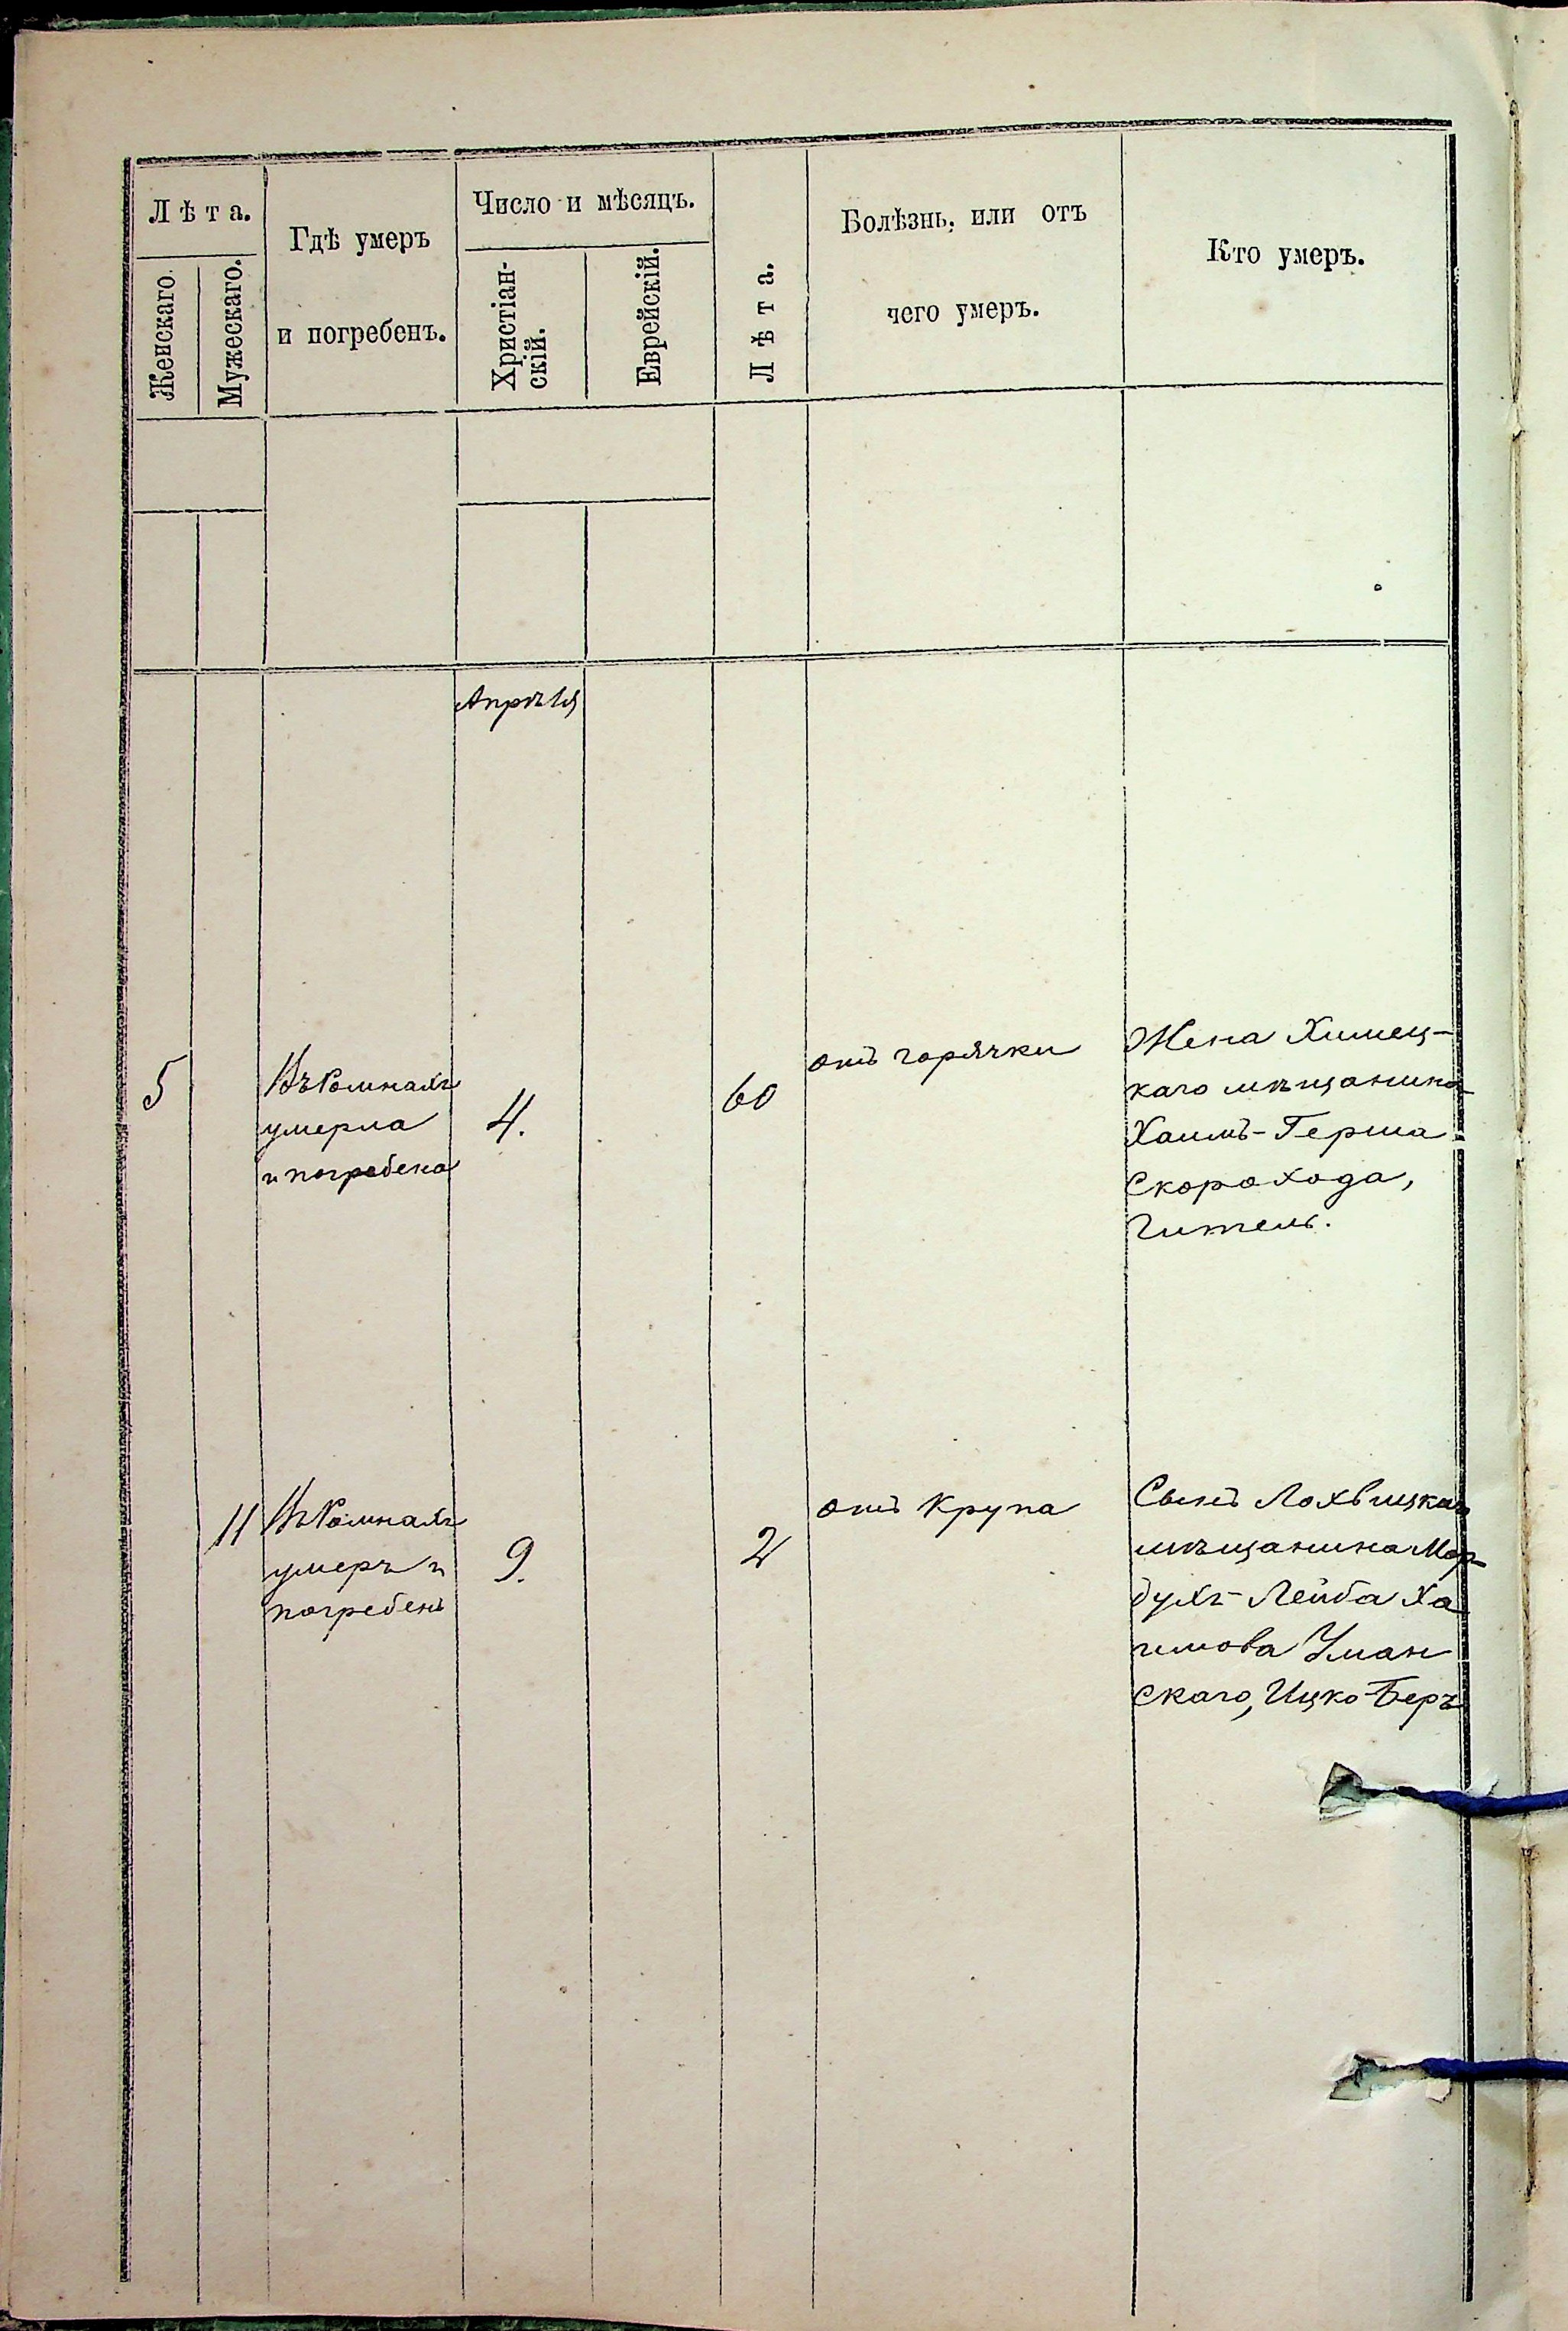 Лѣта.
Женскаго.
Мужескаго.
Гдѣ умеръ
и погребенъ.
Число и мѣсяцъ.
Христіан-
скій.
Еврейскій.
Лѣта.
Болѣзнь, или отъ
чего умеръ.
Кто умеръ.
Апрѣля
5
Въ Ромнахъ
умерла
и погребена
4.
60
отъ горячки
Жена
каго мѣщанина
Хаимъ-Герша
Скорохода,
Гитель.
11
Въ Ромнахъ
умеръ и
погребенъ
9.
2
отъ Крупа
Сынъ Лохвицкаго
мѣщанина Мор-
духъ-Лейба Ха
имова Уман
скаго, Ицко-Беръ